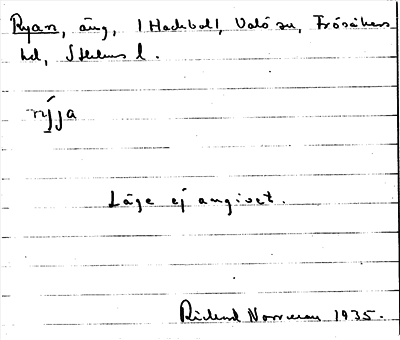 Ryan, äng, i Hackbol, Valö sn, Frösåkers
hd, Sthlms l.
rýja
Läge ej angivet.
Rickard Norrman 1935.